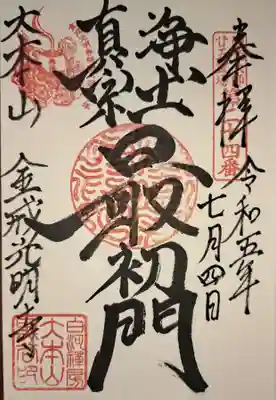 奉拝
令和五年
七月四日
浄土
真宗
最初門
大本山
金戒光明寺
大本山